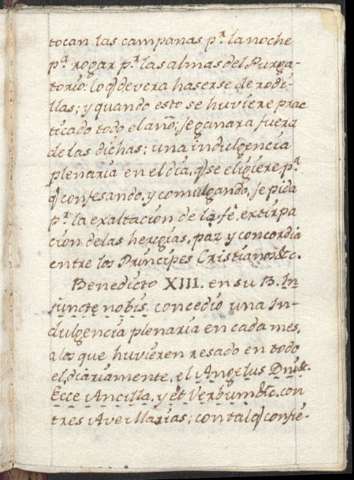 tocan las campanas pª. la noche
pª. rogar pª. las almas del Purga-
torio: lo q̃ devera haserse de rodi-
llas; y quando esto se huviere prac
ticado todo el año; se ganara fuera
de las dichas; una indulgencia
plenaria en el dia, q̃ se eligiere pª.
q̃ confesando, y comulgando, se pida
pª. la exaltacion de la fe, extirpa
cion de las heregias, paz y concordia
entre los Principes Cristianos &c.
Benedicto XIII. en su B. In
juncte nobis, concedio una In-
dulgencia plenaria en cada mes,
a los que huvieren resado en todo
el, diariamente, el Angelus Dñi &c.
Ecce Ancilla, y et Verbum &c. con
tres Ave Marias; con tal q̃ confie-